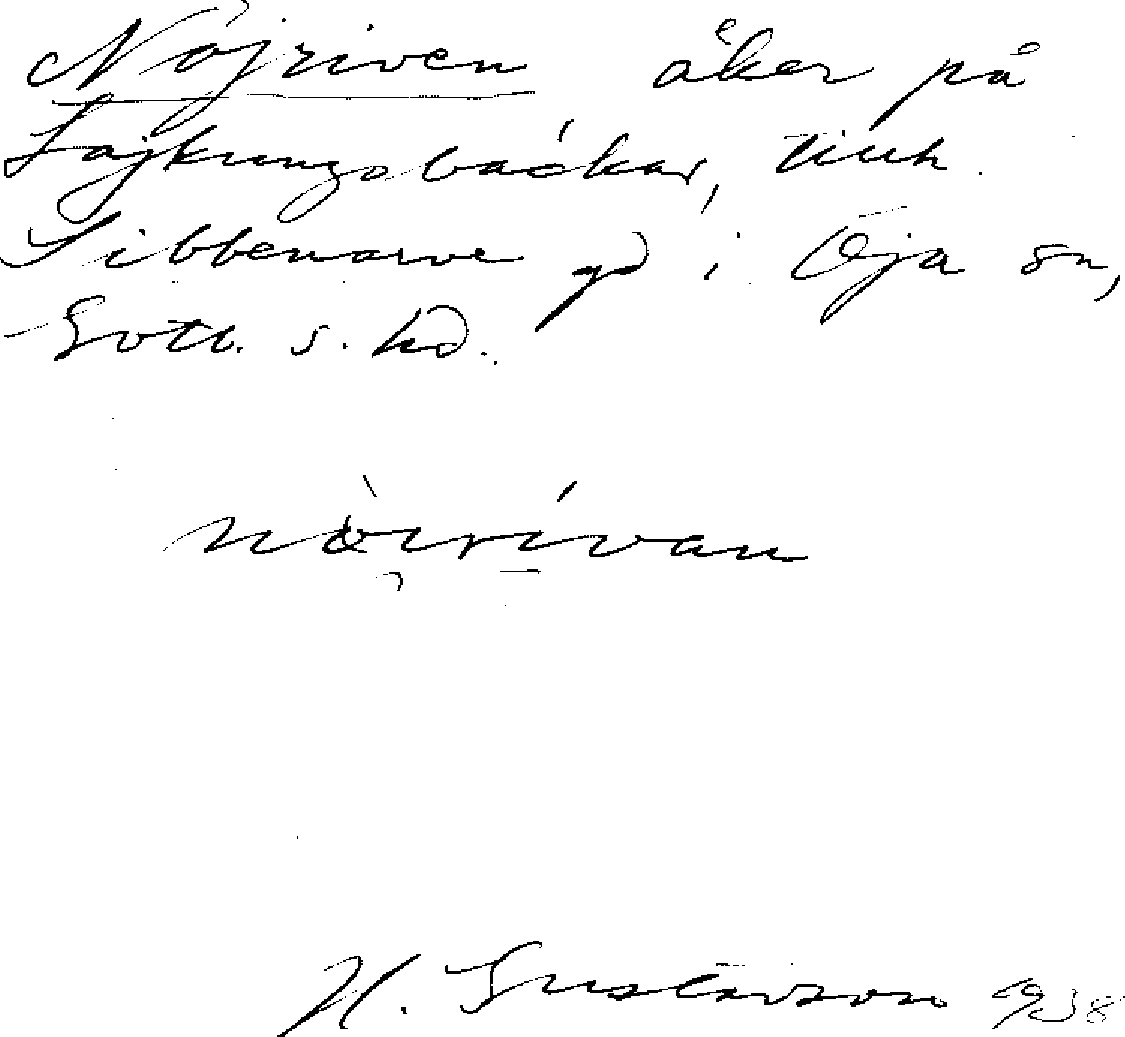 Nöjriven åker på
Lajkungsbackar, tillh.
Sibbenarve gd i Öja sn,
Gotl. s. hd.
nòirívan
H. Gustavson 1938